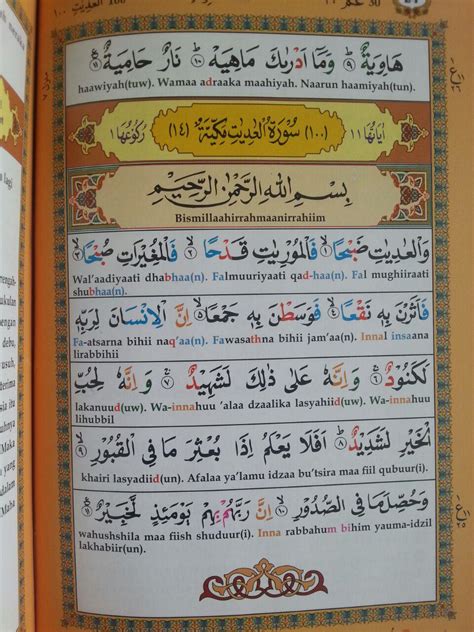 هَاوِيَةٌ ۙ ٩ وَمَآ اَدْرٰىكَ مَاهِيَهْ ۗ ١٠ نَارٌ حَامِيَةٌ ١١
haawiyah(tuw). Wamaa adraaka maahiyah. Naarun haamiyah(tun).
اٰيَاتُهَا ١١ (١٠٠) سُوْرَةُ الْعٰدِيٰتِ مَكِّيَّةٌ (١٤) رُكُوْعُهَا ١
بِسْمِ اللهِ الرَّحْمٰنِ الرَّحِيْمِ
Bismillaahirrahmaanirrahiim
وَالْعٰدِيٰتِ ضَبْحًا ۙ ١ فَالْمُوْرِيٰتِ قَدْحًا ۙ ٢ فَالْمُغِيْرٰتِ صُبْحًا ۙ ٣
Wal'aadiyaati dhabhaa(n). Falmuuriyaati qad-haa(n). Fal mughiiraati
shubhaa(n).
فَاَثَرْنَ بِهٖ نَقْعًا ۙ ٤ فَوَسَطْنَ بِهٖ جَمْعًا ۙ ٥ اِنَّ الْاِنْسَانَ لِرَبِّهٖ
Fa-atsarna bihii naq'aa(n). Fawasathna bihii jam'aa(n). Innal insaana
lirabbihii
لَكَنُوْدٌ ۚ ٦ وَاِنَّهٗ عَلٰى ذٰلِكَ لَشَهِيْدٌ ۚ ٧ وَاِنَّهٗ لِحُبِّ
lakanuud(uw). Wa-innahuu 'alaa dzaalika lasyahiid(uw). Wa-innahuu
lihubbil
الْخَيْرِ لَشَدِيْدٌ ۗ ٨ اَفَلَا يَعْلَمُ اِذَا بُعْثِرَ مَا فِى الْقُبُوْرِ ۙ ٩
khairi lasyadiid(un). Afalaa ya'lamu idzaa bu'tsira maa fiil qubuur(i).
وَحُصِّلَ مَا فِى الصُّدُوْرِ ۙ ١٠ اِنَّ رَبَّهُمْ بِهِمْ يَوْمَئِذٍ لَّخَبِيْرٌ ١١
wahushshila maa fiish shuduur(i). Inna rabbahum bihim yauma-idzil
lakhabiir(un).